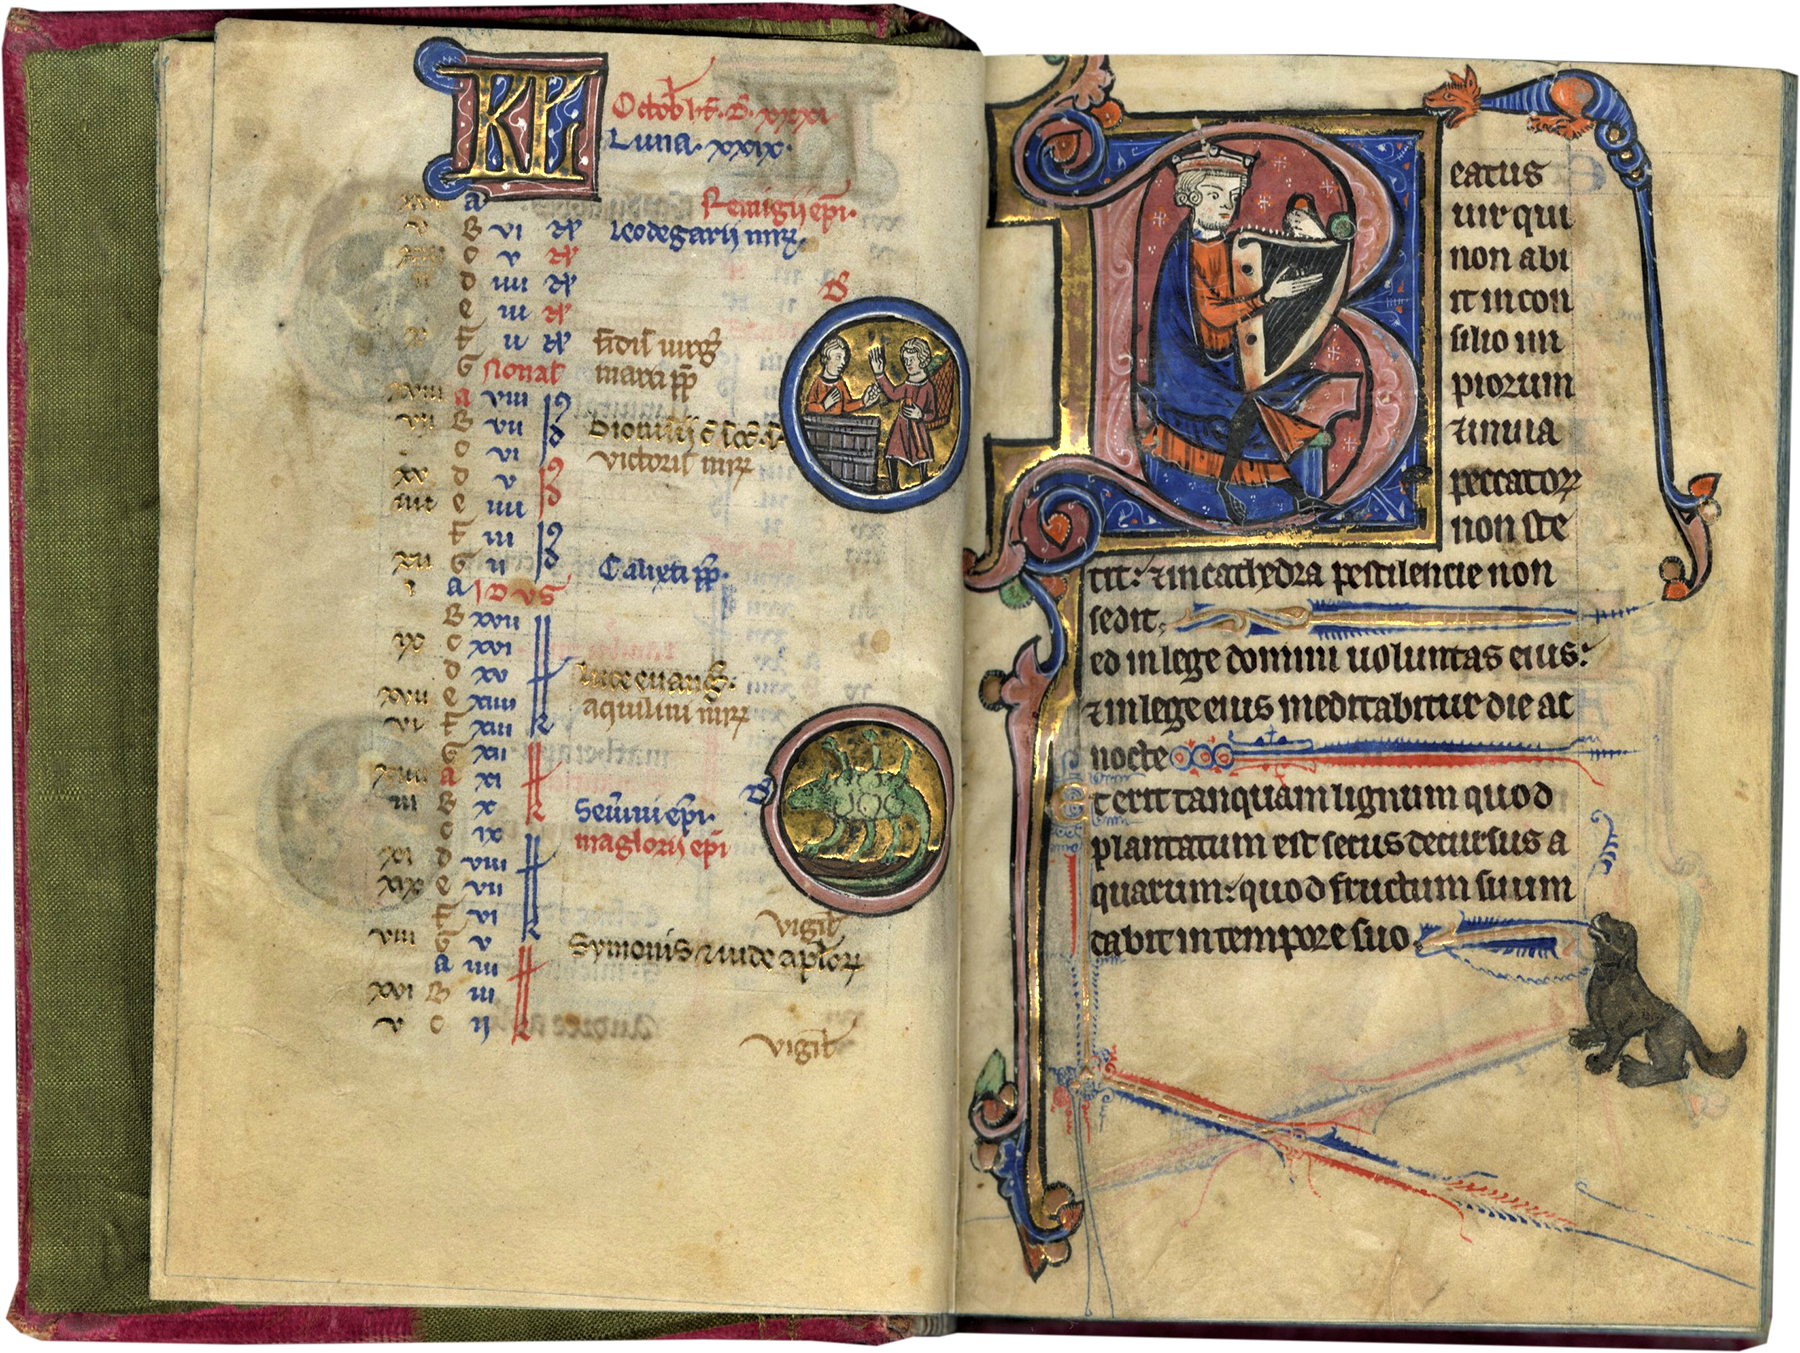 KL Octob ht. D. xxxi
Luna. xxix.
a Remigii epi.
v B vi Leodegarii mr.
c v
ii d iiii
e iii
x f ii fidis virg
G Nonas marci pp
xviii a viii
vii B vii Dionisii
c vi victoris mr
xv d v
iiii e iiii
f iii
xii G ii Calixti pp.
i a IDVS
B xvii
ix c xvi
d xv Luce evang.
xvii e xiiii aquilini mr
vi f xiii
G xii
xiiii a xi
iii B x Severini epi.
c ix maglorii epi
xi d viii
xix e vii
f vi vigil
viii G v Symonis & iude aplor
a iiii
xvi B iii
v c ii vigil
B
eatus
uir qui
non abi
it in con
silio im
piorum
& in uia
peccator
non ste
tit: & in cathedra pestilencie non
sedit.
ed in lege domini uoluntas eius:
& in lege eius meditabitur die ac
nocte
Et erit tanquam lignum quod
plantatum est secus decursus a
quarum: quod fructum suum
dabit in tempore suo